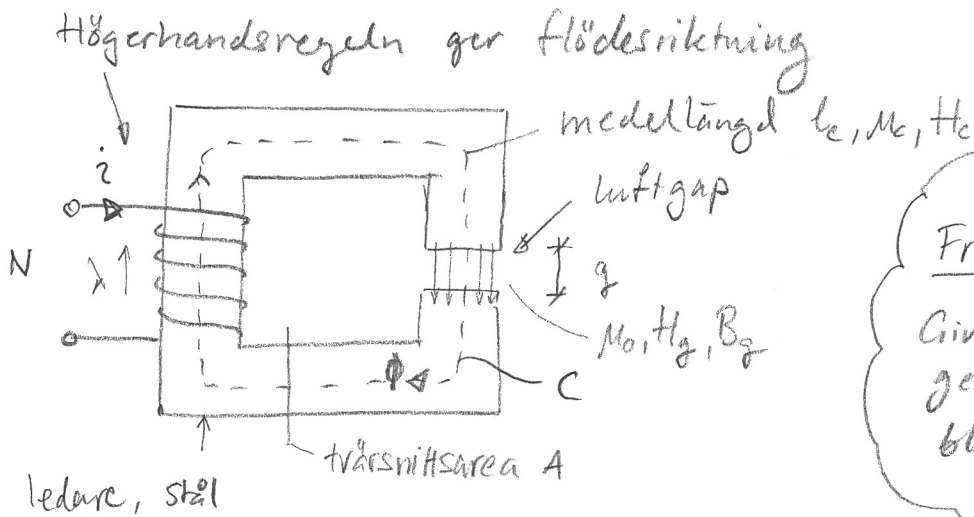 Högerhandsregeln ger flödesriktning
medellängd lc, μc, Hc
i
luftgap
N
λ
g
μ0, Hg, Bg
Φ
C
tvärsnittsarea A
ledare, stål
Fr
Giv
ge
bl